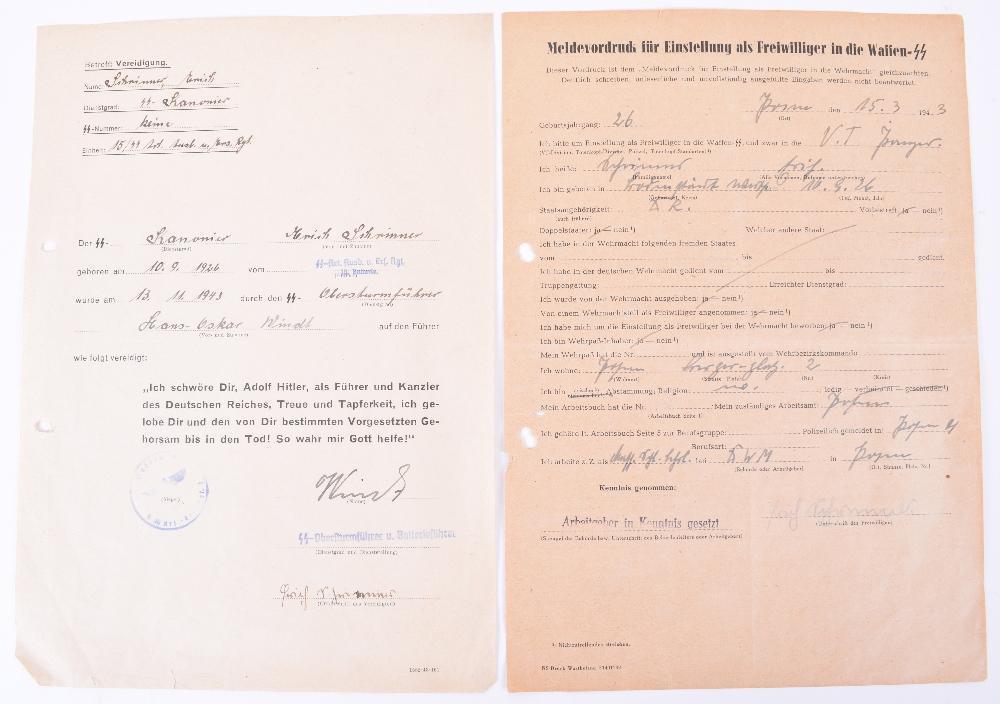 Betreff: Vereidigung.
Name: Schrinner, Erich
Dienstgrad: SS- Kanonier
SS-Nummer: keine
Einheit: 15/SS Art. Ausb. u. Ers. Rgt.
Der SS- Kanonier Erich Schrinner
(Dienstgrad) (Vor- und Zuname)
geboren am 10. 9. 1926 vom SS-Art. Ausb. u. Ers. Rgt.
15. Batterie
wurde am 13. 11. 1943 durch den SS- Obersturmführer
(Dienstgrad)
Hans-Oskar Windt auf den Führer
(Vor- und Zuname)
wie folgt vereidigt:
„Ich schwöre Dir, Adolf Hitler, als Führer und Kanzler
des Deutschen Reiches, Treue und Tapferkeit, ich ge-
lobe Dir und den von Dir bestimmten Vorgesetzten Ge-
horsam bis in den Tod! So wahr mir Gott helfe!“
(Siegel)
Windt
(Name)
SS-Obersturmführer u. Batterieführer
(Dienstgrad und Dienststellung)
Erich Schrinner
(Unterschrift des Vereidigten)
Meldevordruck für Einstellung als Freiwilliger in die Waffen-SS
Dieser Vordruck ist dem „Meldevordruck für Einstellung als Freiwilliger in die Wehrmacht“ gleichzuachten.
Deutlich schreiben, unleserliche und unvollständig ausgefüllte Eingaben werden nicht beantwortet.
Posen den 15. 3 194 3
(Ort)
Geburtsjahrgang: 26
Ich bitte um Einstellung als Freiwilliger in die Waffen-SS, und zwar in die V.T. Panzer.
Ich heiße: Schrinner Erich.
(Familienname)
Ich bin geboren in 10. 9. 26
(Tag, Monat, Jahr)
Staatsangehörigkeit: D.R. Vorbestraft: ja — nein ¹)
(auch frühere)
Doppelstaater: ja — nein ¹) Welcher andere Staat:
Ich habe in der Wehrmacht folgenden fremden Staates
vom bis gedient.
Ich habe in der deutschen Wehrmacht gedient vom bis
Truppengattung: Erreichter Dienstgrad:
Ich wurde von der Wehrmacht ausgehoben: ja — nein ¹)
Von einem Wehrmachtteil als Freiwilliger angenommen: ja — nein ¹)
Ich habe mich um die Einstellung als Freiwilliger bei der Wehrmacht beworben: ja — nein ¹)
Ich bin Wehrpaß-Inhaber: ja — nein ¹)
Mein Wehrpaß hat die Nr. und ist ausgestellt vom Wehrbezirkskommando
Ich wohne: Posen 2
(Wohnort) (Nr.) (Kreis)
Ich bin Abstammung; Religion: ledig — verheiratet — geschieden ¹)
Mein Arbeitsbuch hat die Nr. Mein zuständiges Arbeitsamt: Posen
(Arbeitsbuch Seite 1)
Ich gehöre lt. Arbeitsbuch Seite 5 zur Berufsgruppe: Polizeilich gemeldet in: Posen
Berufsart:
Ich arbeite z. Z. als bei DWM in Posen
(Behörde oder Arbeitgeber) (Ort, Strasse, Platz, Nr.)
Kenntnis genommen:
Arbeitgeber in Kenntnis gesetzt
(Stempel der Behörde bzw. Unterschrift des Behördenleiters oder Arbeitgebers) (Unterschrift des Freiwilligen)
¹) Nichtzutreffendes streichen.